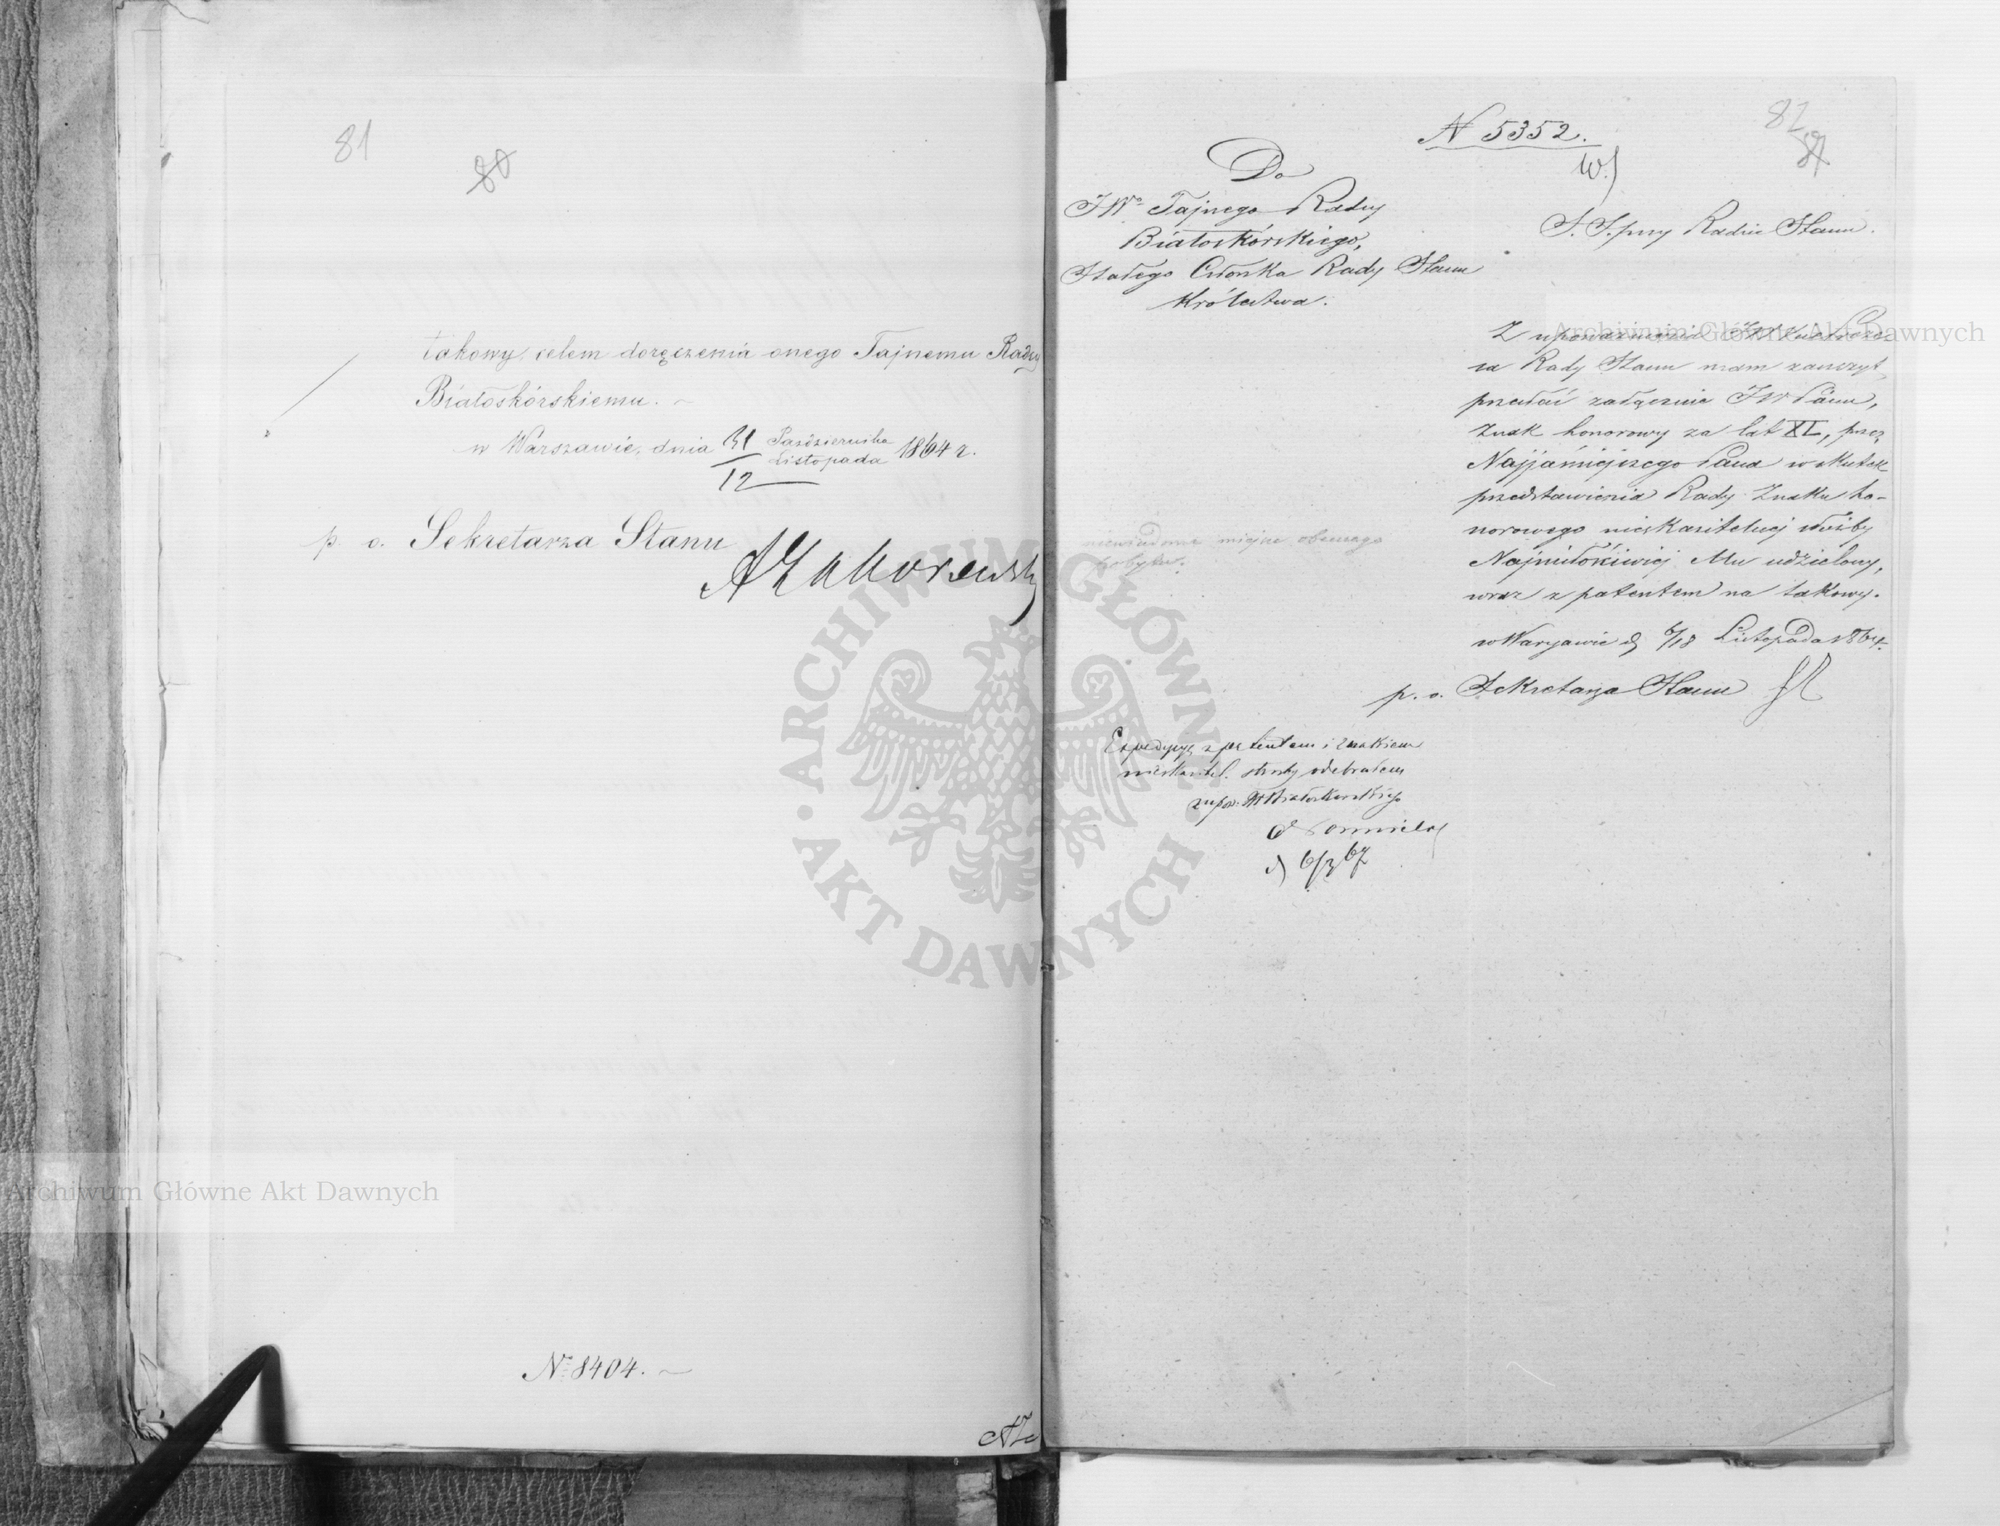 81
80
takowy, celem doręczenia onego Tajnemu Radcy
Białoskórskiemu.
w Warszawie, dnia 31/12 Października/Listopada 1864 r.
p. o. Sekretarza Stanu
№ 8404.
AZ
№ 5352.
82
Do
JWo Tajnego Radcy
Białoskórskiego,
Stałego Członka Rady Stanu
Królestwa.
S. S. przy Radzie Stanu.
Z upoważnienia
Rady Stanu mam zaszczyt
przesłać załącznie JW Panu,
Znak honorowy za lat XL, przez
Najjaśniejszego Pana w skutek
przedstawienia Rady Znaku ho-
norowego nieskazitelnej służby
Najmiłościwiej Mu udzielony,
wraz z patentem na takowy.
w Warszawie d. 6/18 Listopada 1864 r.
p. o. Sekretarza Stanu
niewiadome miejsce obecnego
pobytu.
Expedycyę z patentem i znakiem
nieskazitel. służby odebrałem
Białoskórskiego
d 6/3 67
Archiwum Główne Akt Dawnych
Archiwum Główne Akt Dawnych
ARCHIWUM GŁÓWNE · AKT DAWNYCH ·